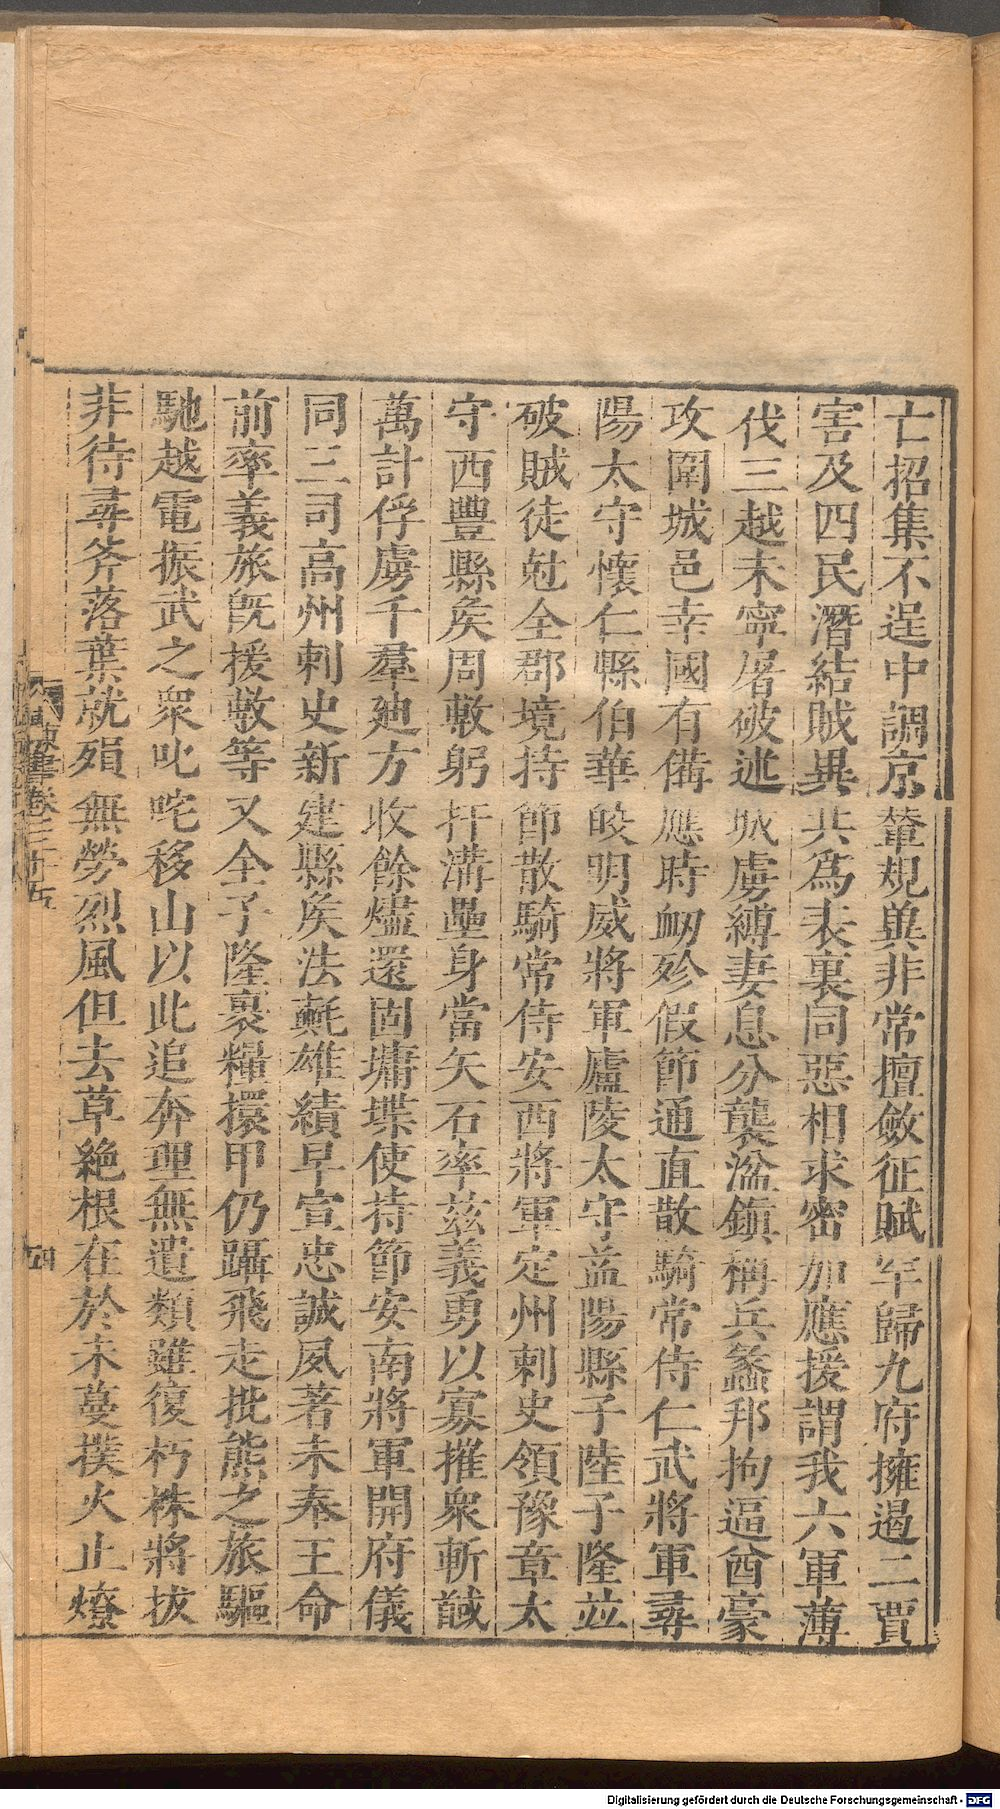 亡招集不逞中調京輦規與非常擅斂征賦罕歸九府擁遏二賈
害及四民潛結賊異共爲表裏同惡相求密加應援謂我六軍薄
伐三越未寧屠破述城虜縛妻息分襲湓鎮稱兵蠡邦拘逼酋豪
攻圍城邑幸國有備應時衂殄假節通直散騎常侍仁武將軍尋
陽太守懷仁縣伯華皎明威將軍廬陵太守益陽縣子陸子隆竝
破賊徒尅全郡境持節散騎常侍安西將軍定州刺史領豫章太
守西豐縣矦周敷躬扞溝壘身當矢石率茲義勇以寡摧衆斬馘
萬計俘虜千羣廸方收餘燼還固墉堞使持節安南將軍開府儀
同三司高州刺史新建縣矦法𣰰雄績早宣忠誠夙著未奉王命
前率義旅旣援敷等又全子隆裹糧擐甲仍躡飛走批熊之旅驅
馳越電振武之衆叱咤移山以此追奔理無遺類雖復朽株將拔
非待尋斧落葉就殞無勞烈風但去草絶根在於未蔓撲火止燎
陳書卷三十五
四
Digitalisierung gefördert durch die Deutsche Forschungsgemeinschaft - DFG